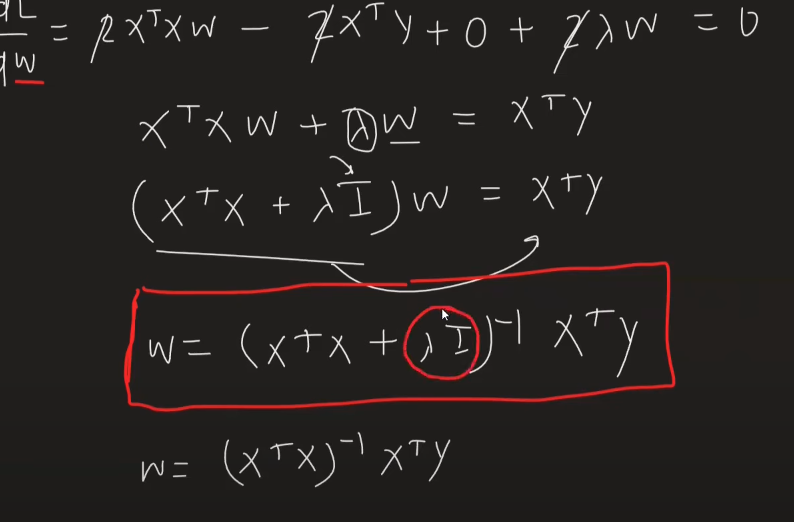 dL/dw = 2XᵀXw − 2Xᵀy + 0 + 2λw = 0
XᵀXw + λw = Xᵀy
(XᵀX + λI)w = Xᵀy
w = (XᵀX + λI)⁻¹ Xᵀy
w = (XᵀX)⁻¹ Xᵀy